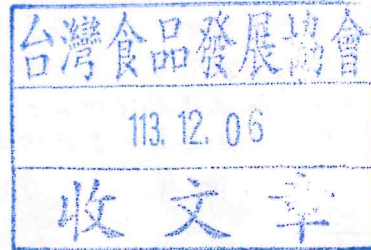 台灣食品發展協會
113. 12. 06
收文章